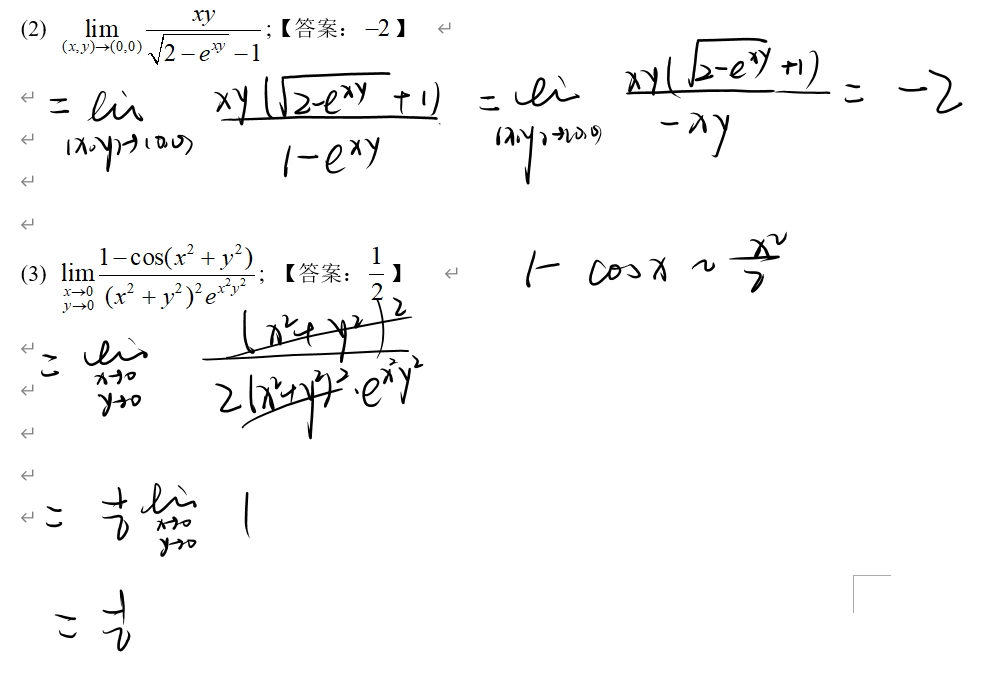 (2) lim (x,y)→(0,0) xy / (√(2−e^{xy}) −1) ;【答案： −2 】
= lim (x,y)→(0,0) xy(√(2-e^{xy}) +1) / (1-e^{xy}) = lim (x,y)→(0,0) xy(√(2-e^{xy}) +1) / (-xy) = -2
(3) lim x→0 y→0 (1−cos(x²+y²)) / ((x²+y²)² e^{x²y²}) ; 【答案： 1/2 】
1- cosx ~ x²/2
= lim x→0 y→0 (x²+y²)² / (2(x²+y²)²·e^{x²y²})
= 1/2 lim x→0 y→0 1
= 1/2